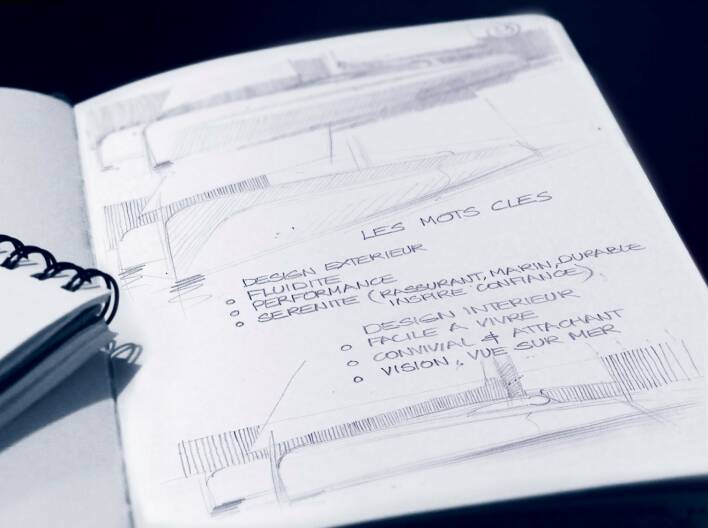 LES MOTS CLES
DESIGN EXTERIEUR
o FLUIDITE
o PERFORMANCE
o SERENITE (RASSURANT, MARIN, DURABLE
INSPIRE CONFIANCE)
DESIGN INTERIEUR
o FACILE A VIVRE
o CONVIVIAL & ATTACHANT
o VISION, VUE SUR MER